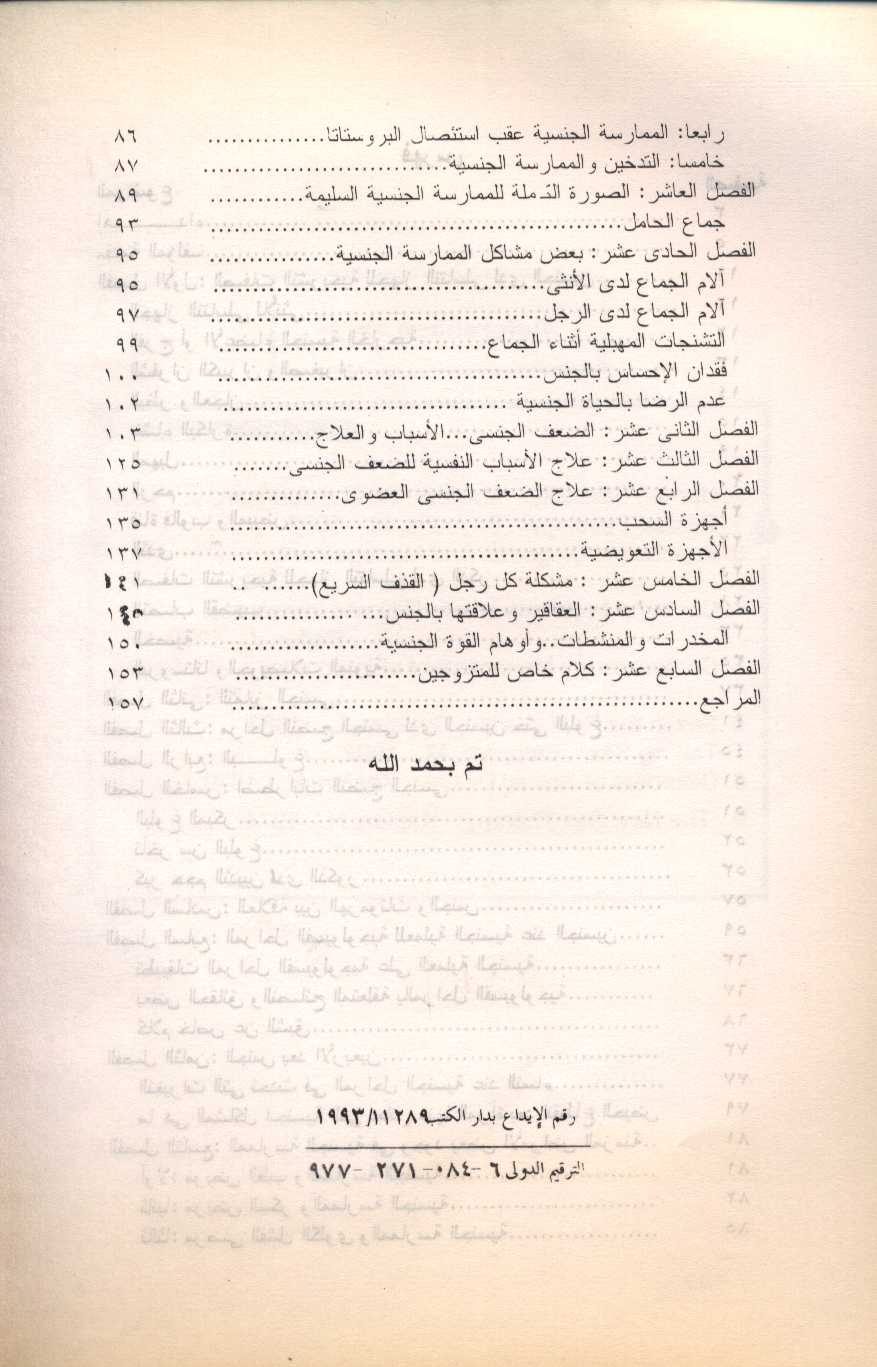 رابعا: الممارسة الجنسية عقب استئصال البروستاتا............... ٨٦
خامسا: التدخين والممارسة الجنسية............................... ٨٧
الفصل العاشر: الصورة الكاملة للممارسة الجنسية السليمة............ ٨٩
جماع الحامل..................................................... ٩٣
الفصل الحادى عشر: بعض مشاكل الممارسة الجنسية................ ٩٥
آلام الجماع لدى الأنثى.......................................... ٩٥
آلام الجماع لدى الرجل.......................................... ٩٧
التشنجات المهبلية أثناء الجماع.................................. ٩٩
فقدان الإحساس بالجنس......................................... ١٠٠
عدم الرضا بالحياة الجنسية .................................... ١٠٢
الفصل الثانى عشر: الضعف الجنسى...الأسباب والعلاج........... ١٠٣
الفصل الثالث عشر: علاج الأسباب النفسية للضعف الجنسى....... ١٢٥
الفصل الرابع عشر: علاج الضعف الجنسى العضوى.............. ١٣١
أجهزة السحب.................................................. ١٣٥
الأجهزة التعويضية............................................. ١٣٧
الفصل الخامس عشر : مشكلة كل رجل ( القذف السريع)...... .. ١٤١
الفصل السادس عشر: العقاقير وعلاقتها بالجنس... .............. ١٤٥
المخدرات والمنشطات..وأوهام القوة الجنسية.................... ١٥٠
الفصل السابع عشر: كلام خاص للمتزوجين...................... ١٥٣
المراجع....................................................... ١٥٧
تم بحمد الله
رقم الإيداع بدار الكتب ١٩٩٣/١١٢٨٩
الترقيم الدولى ٦ -٠٨٤- ٢٧١ -٩٧٧